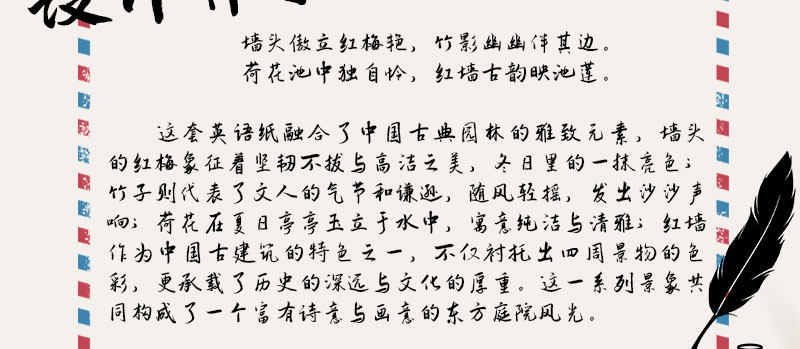 墙头傲立红梅艳，竹影幽幽伴其边。
荷花池中独自怜，红墙古韵映池莲。
这套英语纸融合了中国古典园林的雅致元素，墙头
的红梅象征着坚韧不拔与高洁之美，冬日里的一抹亮色；
竹子则代表了文人的气节和谦逊，随风轻摇，发出沙沙声
响；荷花在夏日亭亭玉立于水中，寓意纯洁与清雅；红墙
作为中国古建筑的特色之一，不仅衬托出四周景物的色
彩，更承载了历史的深远与文化的厚重。这一系列景象共
同构成了一个富有诗意与画意的东方庭院风光。